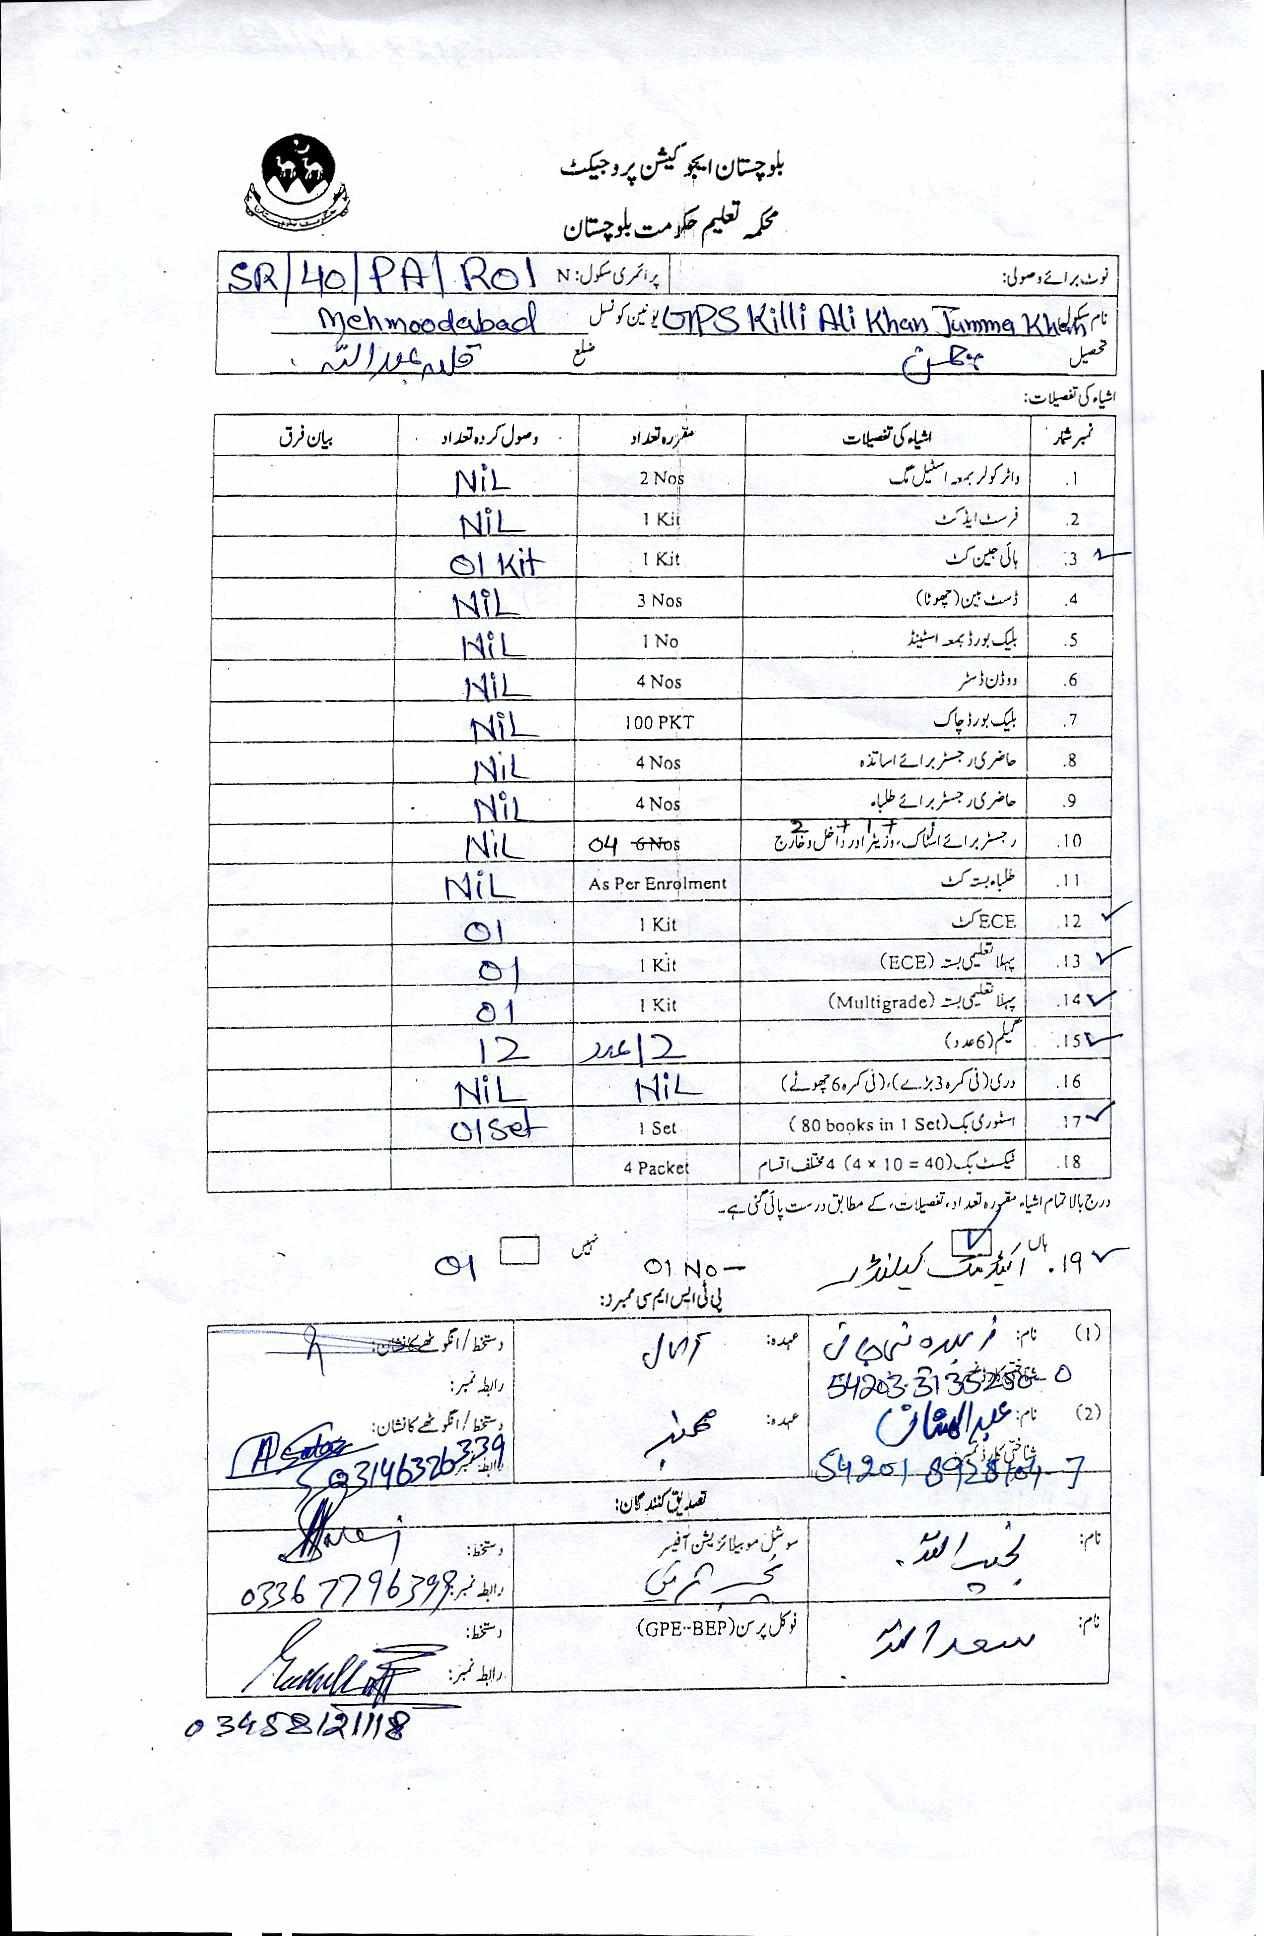 بلوچستان ایجوکیشن پروجیکٹ
محکمہ تعلیم حکومت بلوچستان
نوٹ برائے وصولی: پرائمری سکول: N SR/40/PA/R01
نام سکول GPS Killi Ali Khan Jumma Khan یونین کونسل Mehmoodabad
تحصیل چمن ضلع قلعہ عبداللہ
اشیاء کی تفصیلات:
نمبر شمار اشیاء کی تفصیلات مقررہ تعداد وصول کردہ تعداد بیان فرق
.1 واٹر کولر بمعہ اسٹیل مگ 2 Nos NiL
.2 فرسٹ ایڈ کٹ 1 Kit NiL
.3 ہائی جین کٹ 1 Kit 01 Kit
.4 ڈسٹ بین (چھوٹا) 3 Nos NiL
.5 بلیک بورڈ بمعہ اسٹینڈ 1 No NiL
.6 ووڈن ڈسٹر 4 Nos NiL
.7 بلیک بورڈ چاک 100 PKT NiL
.8 حاضری رجسٹر برائے اساتذہ 4 Nos NiL
.9 حاضری رجسٹر برائے طلباء 4 Nos NiL
2 + 1 + 1
.10 رجسٹر برائے اسٹاک، وزیٹر اور داخل و خارج 04 6 Nos NiL
.11 طلباء بستہ کٹ As Per Enrolment NiL
.12 ECE کٹ 1 Kit 01
.13 پہلا تعلیمی بستہ (ECE) 1 Kit 01
.14 پہلا تعلیمی بستہ (Multigrade) 1 Kit 01
.15 گیلم (6 عدد) 12 عدد 12
.16 دری (فی کمرہ 3 بڑے)، (فی کمرہ 6 چھوٹے) NiL NiL
.17 اسٹوری بک (80 books in 1 Set) 1 Set 01 Set
.18 ٹیکسٹ بک (4 × 10 = 40) 4 مختلف اقسام 4 Packet
درج بالا تمام اشیاء مقررہ تعداد، تفصیلات، کے مطابق درست پائی گئی ہے۔
ہاں نہیں
۱۹. اکیڈمک کیلنڈر 01 No 01
پی ٹی ایس ایم سی ممبرز:
(1) نام: عہدہ: دستخط/انگوٹھے کا نشان:
شناختی کارڈ نمبر: 54203-3135250-0 رابطہ نمبر:
(2) نام: عبدالمنان عہدہ: ممبر دستخط/انگوٹھے کا نشان:
شناختی کارڈ نمبر: رابطہ نمبر: 03146326339
تصدیق کنندگان:
نام: نجیب اللہ سوشل موبیلائزیشن آفیسر دستخط:
رابطہ نمبر: 03367796399
نام: سعد اللہ فوکل پرسن (GPE-BEP) دستخط:
رابطہ نمبر:
03458121118